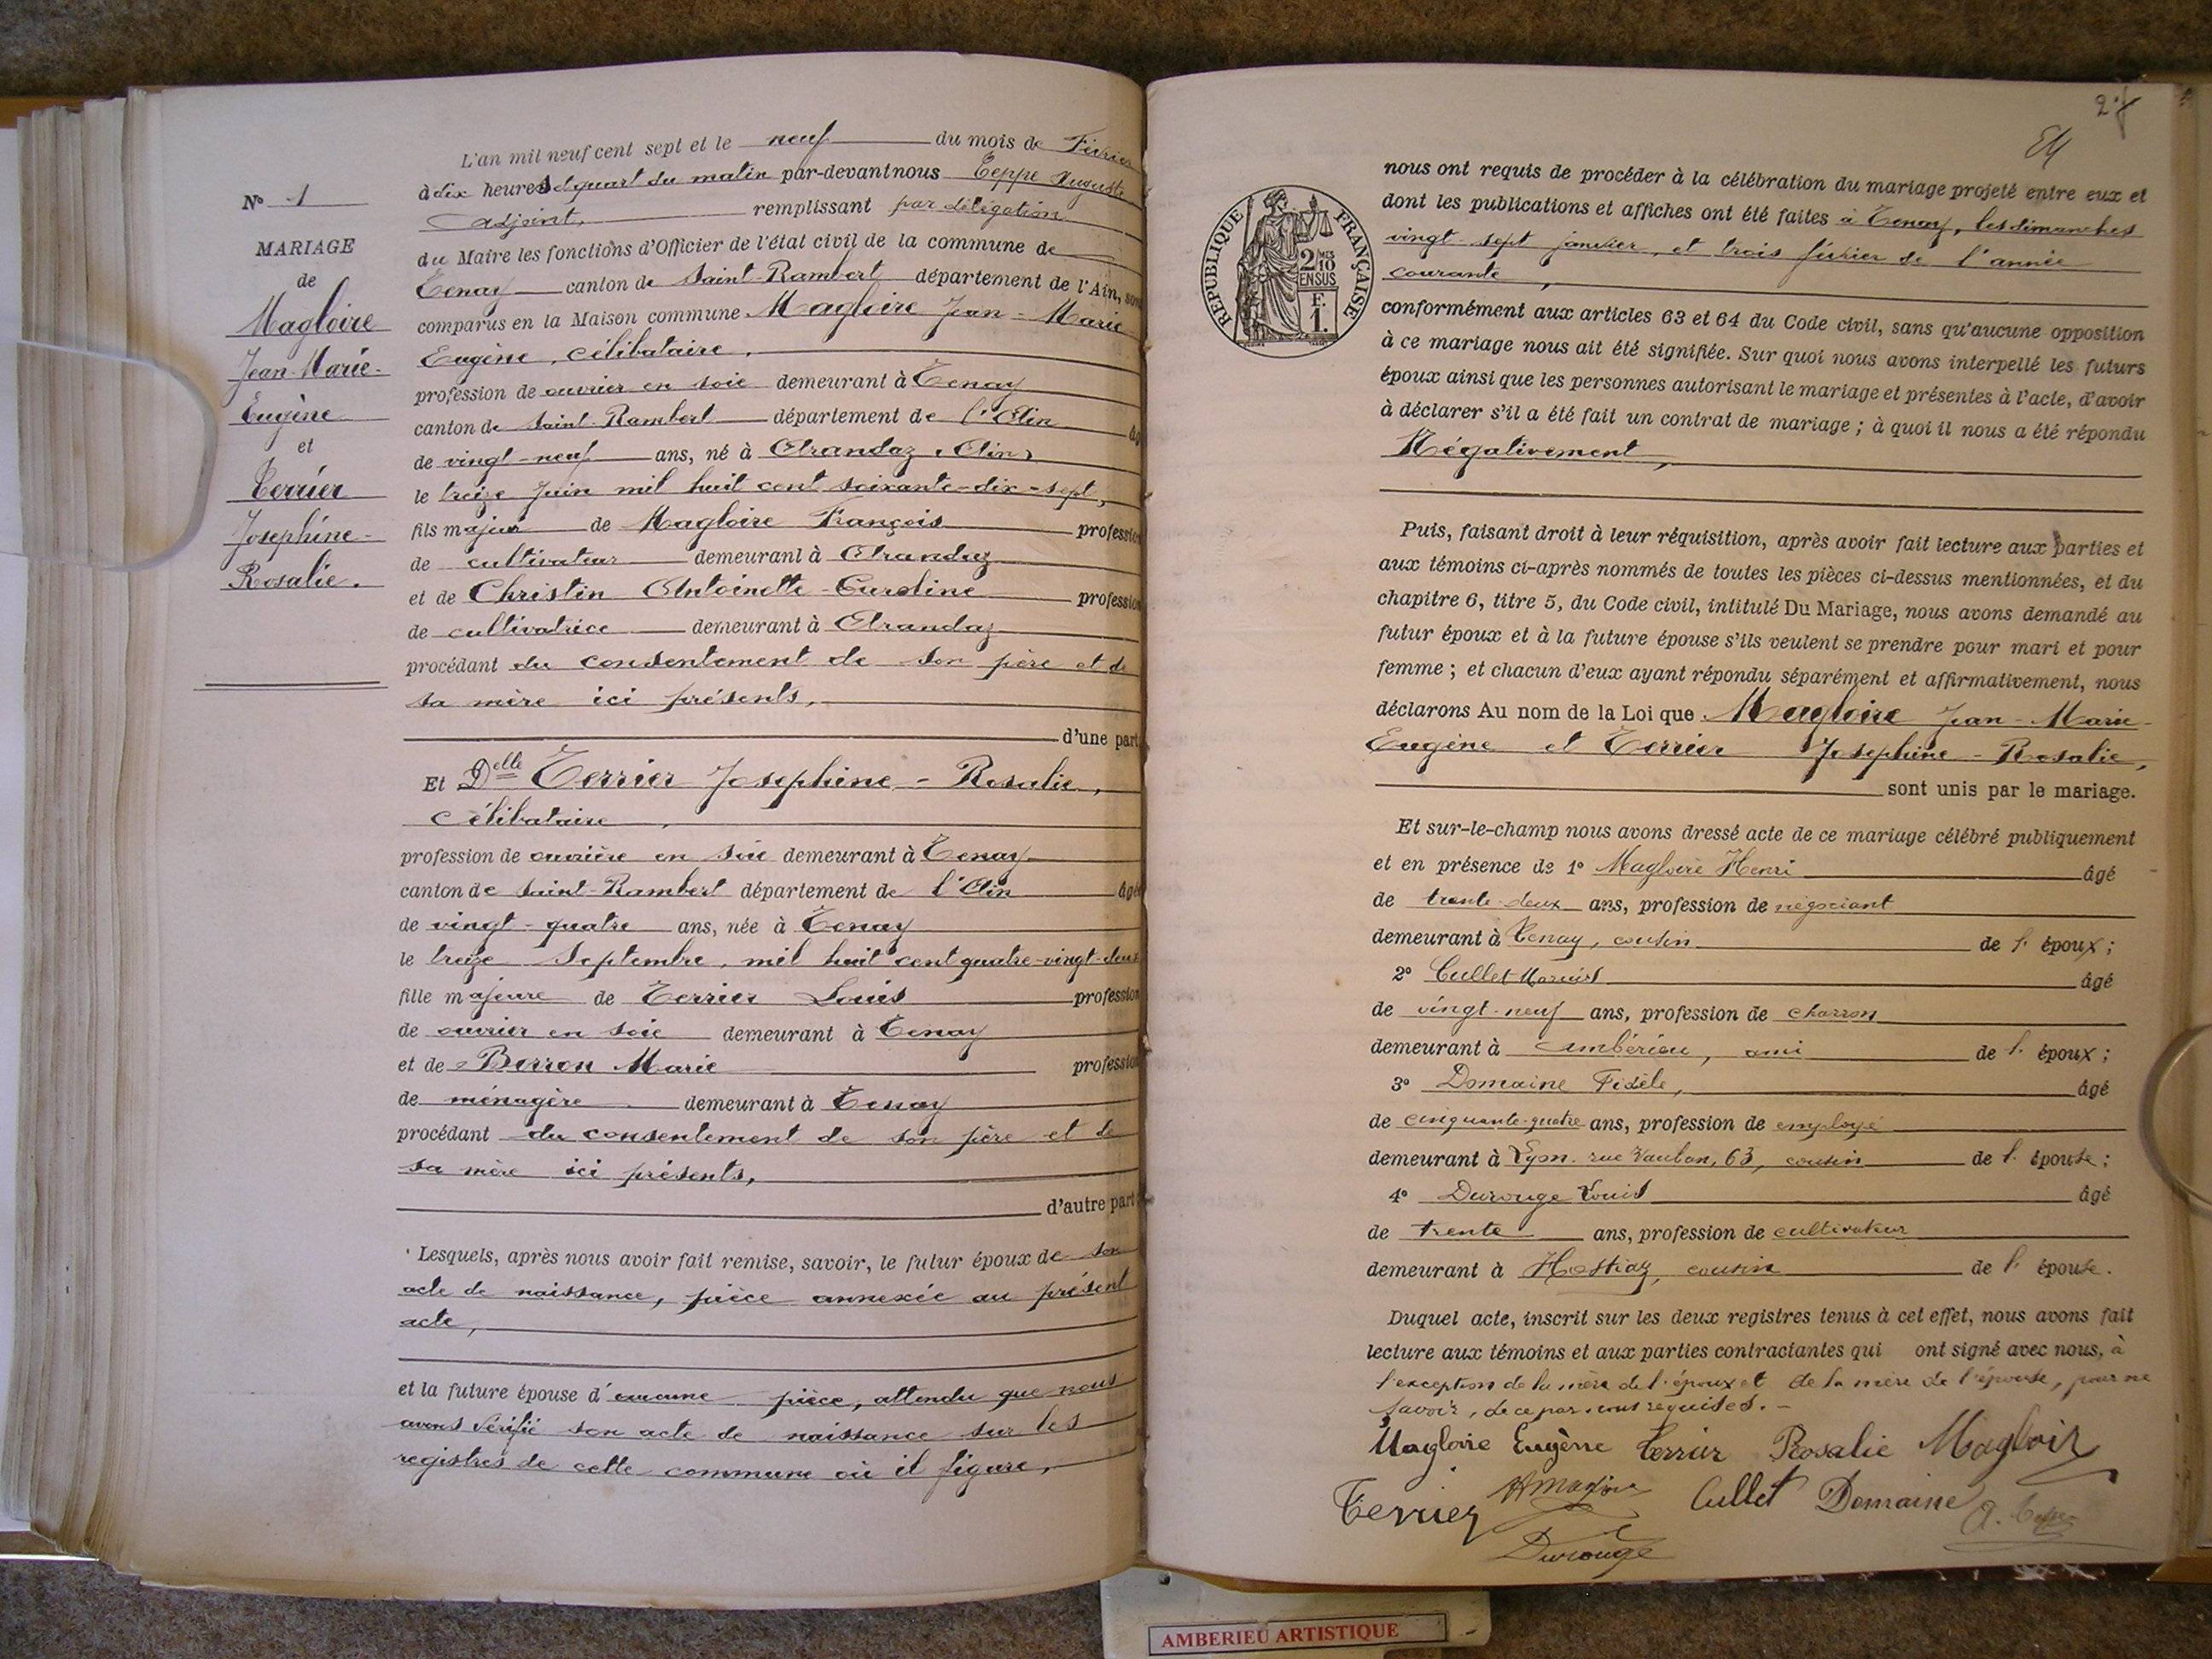 N° 1
MARIAGE
de
Magloire
Jean-Marie-
Eugène
et
Terrier
Josephine-
Rosalie.
L'an mil neuf cent sept et le neuf du mois de Février
à dix heures et quart du matin par-devant nous Teppe Auguste
adjoint, remplissant par délégation
du Maire les fonctions d'Officier de l'état civil de la commune de
Tenay canton de Saint-Rambert département de l'Ain, sont
comparus en la Maison commune Magloire Jean-Marie
Eugène, célibataire,
profession de ouvrier en soie demeurant à Tenay
canton de Saint-Rambert département de l'Ain âgé
de vingt-neuf ans, né à Arandaz (Ain)
le treize Juin mil huit cent soixante-dix-sept,
fils majeur de Magloire François profession
de cultivateur demeurant à Arandaz
et de Christin Antoinette-Caroline profession
de cultivatrice demeurant à Arandaz
procédant du consentement de son père et de
sa mère ici présents,
d'une part
Et Delle Terrier Josephine-Rosalie,
célibataire,
profession de ouvrière en soie demeurant à Tenay
canton de Saint-Rambert département de l'Ain âgée
de vingt-quatre ans, née à Tenay
le treize Septembre, mil huit cent quatre-vingt-deux
fille majeure de Terrier Louis profession
de ouvrier en soie demeurant à Tenay
et de Berron Marie profession
de ménagère demeurant à Tenay
procédant du consentement de son père et de
sa mère ici présents,
d'autre part
Lesquels, après nous avoir fait remise, savoir, le futur époux de son
acte de naissance, pièce annexée au présent
acte,
et la future épouse d'aucune pièce, attendu que nous
avons vérifié son acte de naissance sur les
registres de cette commune où il figure,
27
REPUBLIQUE FRANÇAISE
2 MES
10
EN SUS
F.
1.
nous ont requis de procéder à la célébration du mariage projeté entre eux et
dont les publications et affiches ont été faites à Tenay, les dimanches
vingt-sept janvier, et trois février de l'année
courante,
conformément aux articles 63 et 64 du Code civil, sans qu'aucune opposition
à ce mariage nous ait été signifiée. Sur quoi nous avons interpellé les futurs
époux ainsi que les personnes autorisant le mariage et présentes à l'acte, d'avoir
à déclarer s'il a été fait un contrat de mariage ; à quoi il nous a été répondu
Négativement,
Puis, faisant droit à leur réquisition, après avoir fait lecture aux parties et
aux témoins ci-après nommés de toutes les pièces ci-dessus mentionnées, et du
chapitre 6, titre 5, du Code civil, intitulé Du Mariage, nous avons demandé au
futur époux et à la future épouse s'ils veulent se prendre pour mari et pour
femme ; et chacun d'eux ayant répondu séparément et affirmativement, nous
déclarons Au nom de la Loi que Magloire Jean-Marie-
Eugène et Terrier Josephine-Rosalie,
sont unis par le mariage.
Et sur-le-champ nous avons dressé acte de ce mariage célébré publiquement
et en présence de 1° Magloire Henri âgé
de trente-deux ans, profession de négociant
demeurant à Tenay, cousin de l'époux ;
2° Cullet Marius âgé
de vingt-neuf ans, profession de charron
demeurant à Ambérieu, ami de l'époux ;
3° Domaine Fidèle, âgé
de cinquante-quatre ans, profession de employé
demeurant à Lyon. rue Vauban, 63, cousin de l'épouse ;
4° Durouge Louis âgé
de trente ans, profession de cultivateur
demeurant à Hostiaz, cousin de l'épouse.
Duquel acte, inscrit sur les deux registres tenus à cet effet, nous avons fait
lecture aux témoins et aux parties contractantes qui ont signé avec nous, à
l'exception de la mère de l'époux et de la mère de l'épouse, pour ne
savoir, de ce par nous requises.
Magloire Eugène Terrier Rosalie Magloir
Terrier Cullet Domaine
Durouge
AMBERIEU ARTISTIQUE